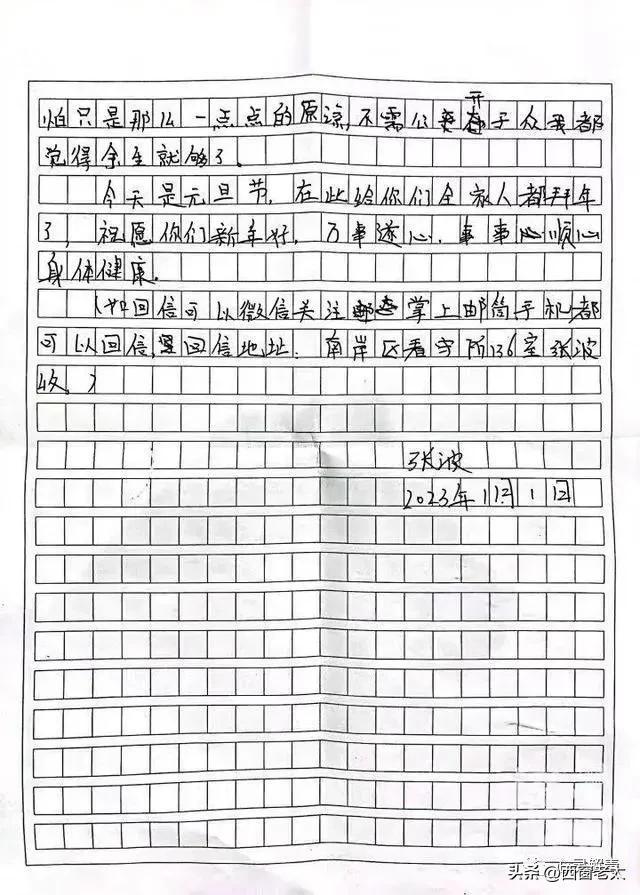 怕只是那么一点点的原谅,不需公开于众我都
觉得余生就够了。
今天是元旦节,在此给你们全家人都拜年
了,祝愿你们新年好,万事遂心,事事顺心
身体健康.
(如回信可以微信关注 掌上邮筒手机都
可以回信,回信地址:南岸区看守所136室张波
收。)
张波
2023年1月1日
头条@西窗老太